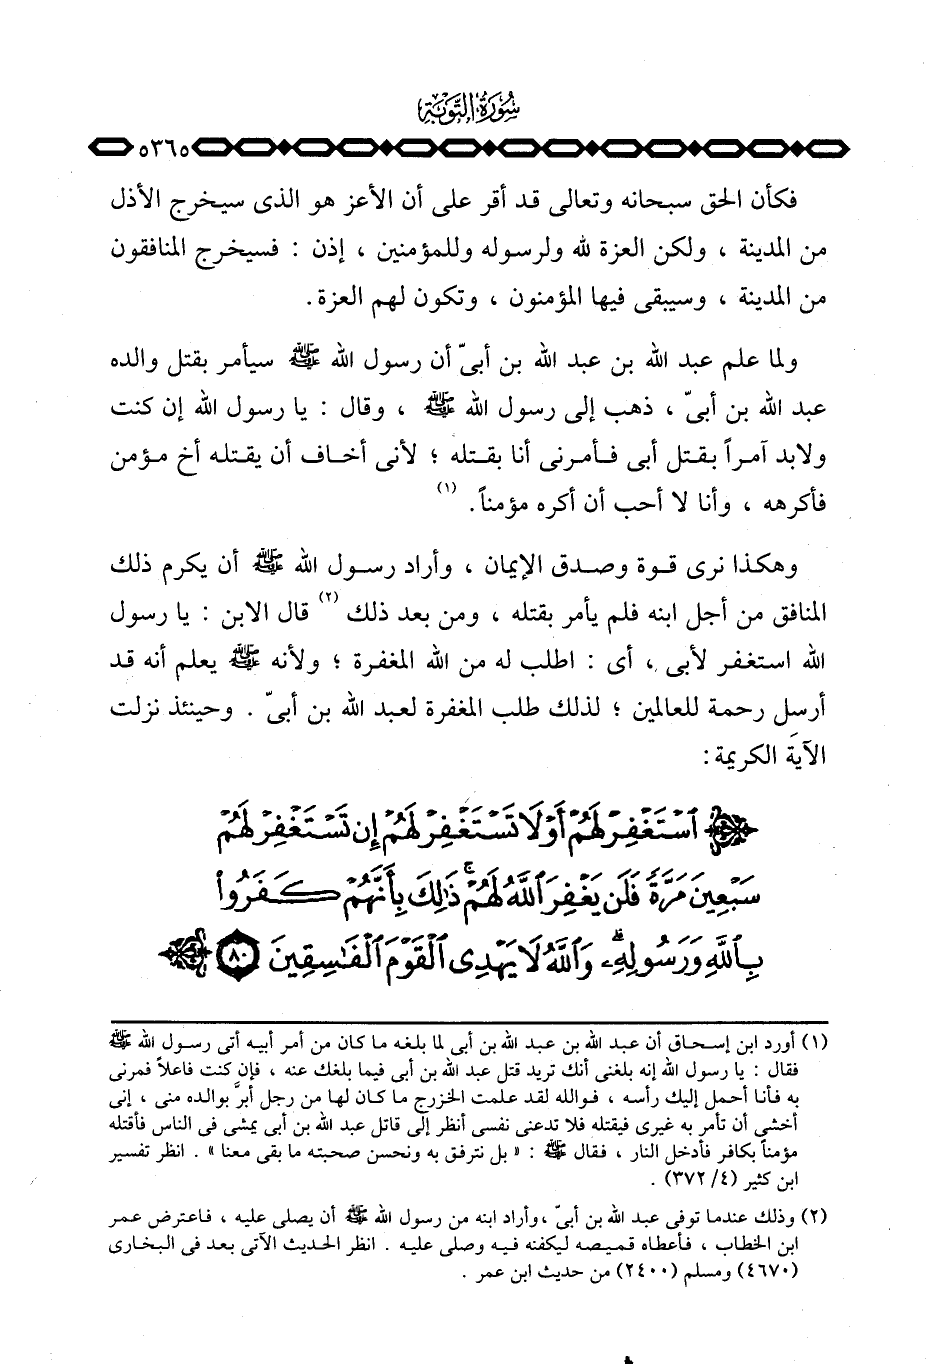 سُورَةُ التَّوبَةِ
٥٣٦٥
فكأن الحق سبحانه وتعالى قد أقر على أن الأعز هو الذى سيخرج الأذل
من المدينة ، ولكن العزة لله ولرسوله وللمؤمنين ، إذن : فسيخرج المنافقون
من المدينة ، وسيبقى فيها المؤمنون ، وتكون لهم العزة.
ولما علم عبد الله بن عبد الله بن أبىّ أن رسول الله ﷺ سيأمر بقتل والده
عبد الله بن أبىّ ، ذهب إلى رسول الله ﷺ ، وقال : يا رسول الله إن كنت
ولابد آمراً بقتل أبى فأمرنى أنا بقتله ؛ لأنى أخاف أن يقتله أخ مؤمن
فأكرهه ، وأنا لا أحب أن أكره مؤمناً.(١)
وهكذا نرى قوة وصدق الإيمان ، وأراد رسول الله ﷺ أن يكرم ذلك
المنافق من أجل ابنه فلم يأمر بقتله ، ومن بعد ذلك (٢) قال الابن : يا رسول
الله استغفر لأبى ، أى : اطلب له من الله المغفرة ؛ ولأنه ﷺ يعلم أنه قد
أرسل رحمة للعالمين ؛ لذلك طلب المغفرة لعبد الله بن أبىّ . وحينئذ نزلت
الآية الكريمة:
ٱسْتَغْفِرْ لَهُمْ أَوْ لَا تَسْتَغْفِرْ لَهُمْ إِن تَسْتَغْفِرْ لَهُمْ
سَبْعِينَ مَرَّةً فَلَن يَغْفِرَ ٱللَّهُ لَهُمْ ۚ ذَٰلِكَ بِأَنَّهُمْ كَفَرُوا۟
بِٱللَّهِ وَرَسُولِهِۦ ۗ وَٱللَّهُ لَا يَهْدِى ٱلْقَوْمَ ٱلْفَٰسِقِينَ ٨٠
(١) أورد ابن إسحاق أن عبد الله بن عبد الله بن أبى لما بلغه ما كان من أمر أبيه أتى رسول الله ﷺ
فقال : يا رسول الله إنه بلغنى أنك تريد قتل عبد الله بن أبى فيما بلغك عنه ، فإن كنت فاعلاً فمرنى
به فأنا أحمل إليك رأسه ، فوالله لقد علمت الخزرج ما كان لها من رجل أبرَّ بوالده منى ، إنى
أخشى أن تأمر به غيرى فيقتله فلا تدعنى نفسى أنظر إلى قاتل عبد الله بن أبى يمشى فى الناس فأقتله
مؤمناً بكافر فأدخل النار ، فقال ﷺ : « بل نترفق به ونحسن صحبته ما بقى معنا » . انظر تفسير
ابن كثير (٤/ ٣٧٢) .
(٢) وذلك عندما توفى عبد الله بن أبىّ ،وأراد ابنه من رسول الله ﷺ أن يصلى عليه ، فاعترض عمر
ابن الخطاب ، فأعطاه قميصه ليكفنه فيه وصلى عليه . انظر الحديث الآتى بعد فى البخارى
(٤٦٧٠) ومسلم (٢٤٠٠) من حديث ابن عمر .